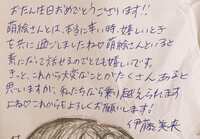 お誕生日おめでとうございます!!
萌絵さんとは、本当に辛い時、嬉しいとき
を共に過ごしましたね♡萌絵さんといると
素になことも話せるのでとても嬉しいです。
きっと、これから大変なことがたくさんあると
思っていますが、私たちなら乗り越えられます
よね♡これからもよろしくお願いします!
伊藤美来